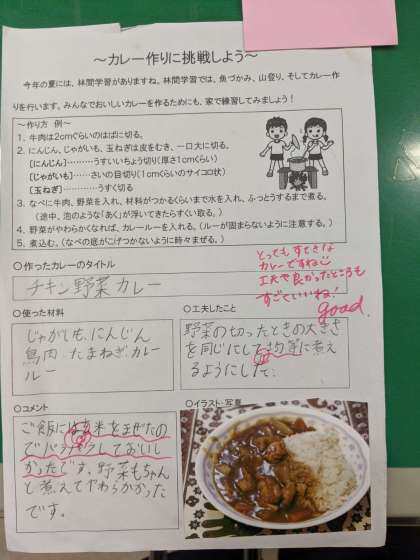 ～カレー作りに挑戦しよう～
今年の夏には、林間学習がありますね。林間学習では、魚づかみ、山登り、そしてカレー作
りを行います。みんなでおいしいカレーを作るためにも、家で練習してみましょう！
～作り方　例～
1．牛肉は2cmぐらいのはばに切る。
2．にんじん、じゃがいも、玉ねぎは皮をむき、一口大に切る。
[にんじん]………うすいいちょう切り(厚さ1cmくらい)
[じゃがいも]……さいの目切り(1cmくらいのサイコロ状)
[玉ねぎ]…………うすく切る
3．なべに牛肉、野菜を入れ、材料がつかるくらいまで水を入れ、ふっとうするまで煮る。
(途中、泡のような「あく」が浮いてきたらすくい取る。)
4．野菜がやわらかくなれば、カレールーを入れる。(ルーが固まらないように注意する。)
5．煮込む。(なべの底がこげつかないように時々まぜる。)
とってもすてきな
カレーですね
工夫や良かったところも
すごくいいね!
good.
○作ったカレーのタイトル
チキン野菜カレー
○使った材料
じゃがいも、にんじん
鳥肉 たまねぎ カレー
ルー
○工夫したこと
野菜の切ったときの大きさ
を同じにして均等に煮え
るようにした。
○コメント
ご飯には玄米を混ぜたの
でパラパラしておいし
かったです。野菜もちゃん
と煮えてやわらかかった
です。
○イラスト・写真